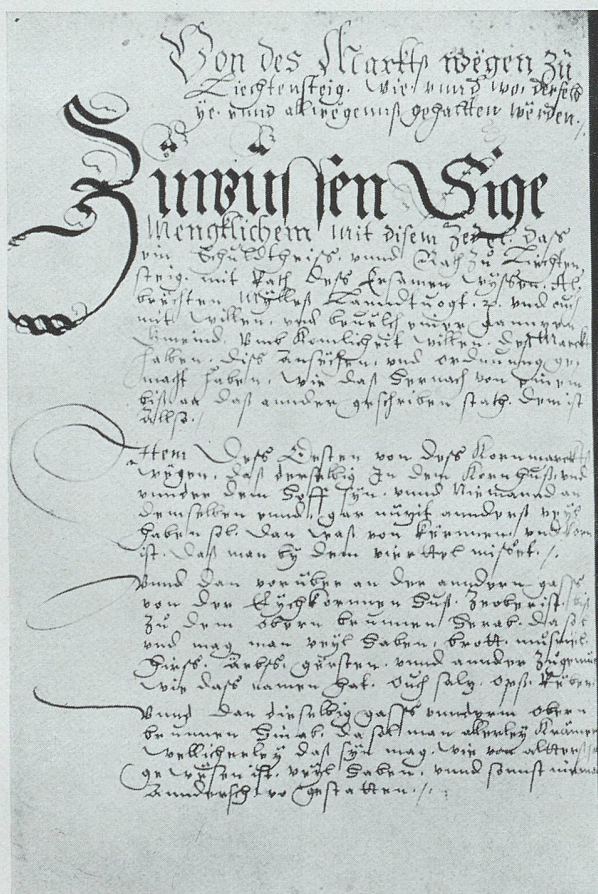 Von des Markts wegen Zů
Liechtensteig. Wie vnnd wo derselb
ye. vnnd allwegenns gehalten werden.
Zůwüssen Sige
Mengklichem mit disem Zedel, das
ein Schuldtheiss. vnnd Rath zů Liechten
steig. mit Rath dess Ersamen wyssen. Al
brechten Mylless Lanndtuogt. vnd ouch
mit willen. vnd beuelch einer ganntzen
Gmeind. vmb Komlichkeit willen. dess Marckt
haben. diss Ansechen. vnd ordnnung ge
macht haben. wie das hernach von einem
biss an das annder geschriben stath. dem ist
Allso.
Ittem Dess Ersten von dess Kornmarckts
wegen. das derselbig In dem Kornhuss. vnd
vnnder dem hoff syn. vnnd Niemannd an
demselben ennd. gar nützit annderst veyl
haben sol. dan was von kernnen. vnd korn
ist. das man by dem viertel misset.
Vnnd dan vorüber an der anndern gass
von der Eychkornnen huss. Zeoberist. biss
Zů dem obern brunnen herab. da sol
vnd mag man veyl haben. brott. mussmel.
hirss. Ärbss. gersten. vnnd annder Zůgemüss
wie dass namen hat. ouch saltz. opss. Rüben.
Vnnd dan dieselbig gass vonn dem obern
brunnen hinab. da sol man allerley Krämer
wellicherley das syn mag. wie von altterss
gewesen ist. veyl haben. vnnd sonnst niemand
Annderschwo gestatten.